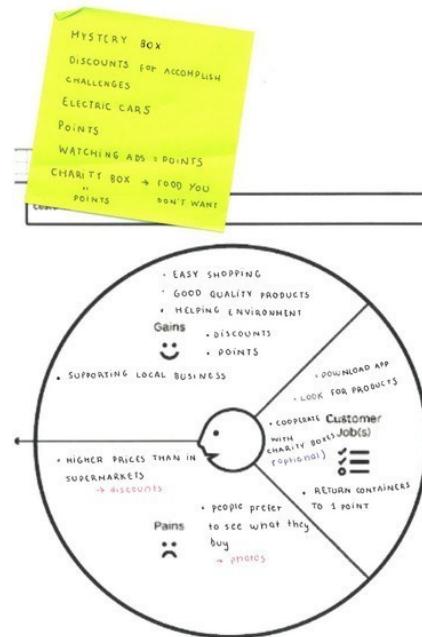 MYSTERY BOX
DISCOUNTS FOR ACCOMPLISH
CHALLENGES
ELECTRIC CARS
POINTS
WATCHING ADS = POINTS
CHARITY BOX → FOOD YOU
" DON'T WANT
POINTS
• EASY SHOPPING
• GOOD QUALITY PRODUCTS
• HELPING ENVIRONMENT
Gains
• DISCOUNTS
• POINTS
• SUPPORTING LOCAL BUSINESS
• DOWNLOAD APP
• LOOK FOR PRODUCTS
• COOPERATE
WITH
CHARITY BOXES
(optional)
Customer
Job(s)
• RETURN CONTAINERS
TO 1 POINT
• HIGHER PRICES THAN IN
SUPERMARKETS
→ discounts
Pains
• people prefer
to see what they
buy
→ photos